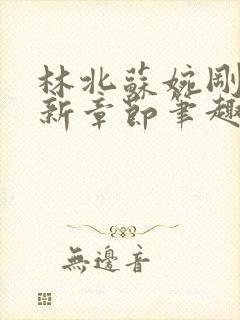 林北蘇婉剛
新章節筆趣
無邊音